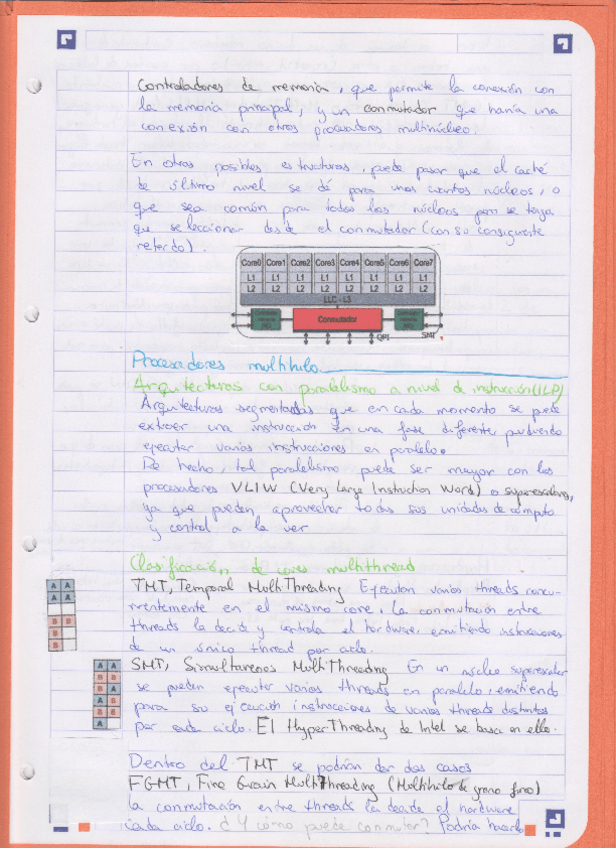 Controladores de memoria, que permite la conexión con
la memoria principal, y un conmutador que haría una
conexión con otros procesadores multinúcleo.
En otras posibles estructuras, puede pasar que el caché
de último nivel se dé para unos cuantos núcleos, o
que sea común para todos los núcleos pero se tenga
que seleccionar desde el conmutador (con su consiguiente
retardo).
Core0 Core1 Core2 Core3 Core4 Core5 Core6 Core7
L1 L1 L1 L1 L1 L1 L1 L1
L2 L2 L2 L2 L2 L2 L2 L2
LLC - L3
Conmutador
QPI
SMI
Procesadores multihilo
Arquitecturas con paralelismo a nivel de instrucción (ILP)
Arquitecturas segmentadas que en cada momento se puede
extraer una instrucción en una fase diferente pudiendo
ejecutar varias instrucciones en paralelo.
De hecho, tal paralelismo puede ser mayor con los
procesadores VLIW (Very Large Instruction Word) o superescalares,
ya que pueden aprovechar todas sus unidades de cómputo
y control a la vez
Clasificación de cores multithread
A A
A A
B B
B
B
TMT, Temporal MultiThreading Ejecutan varios threads concu-
rrentemente en el mismo core, la conmutación entre
threads la decide y controla el hardware, emitiendo instrucciones
de un único thread por ciclo.
A A
B B
B A
B B
B B
A
SMT, Simultaneos MultiThreading En un núcleo superescalar
se pueden ejecutar varios threads en paralelo, emitiendo
para su ejecución instrucciones de varios threads distintos
por cada ciclo. El HyperThreading de Intel se basa en ello.
Dentro del TMT se podrían dar dos casos
FGMT, Fine Grain MultiThreading (Multihilo de grano fino)
La conmutación entre threads la decide el hardware
cada ciclo. ¿Y cómo puede conmutar? Podría hacerlo